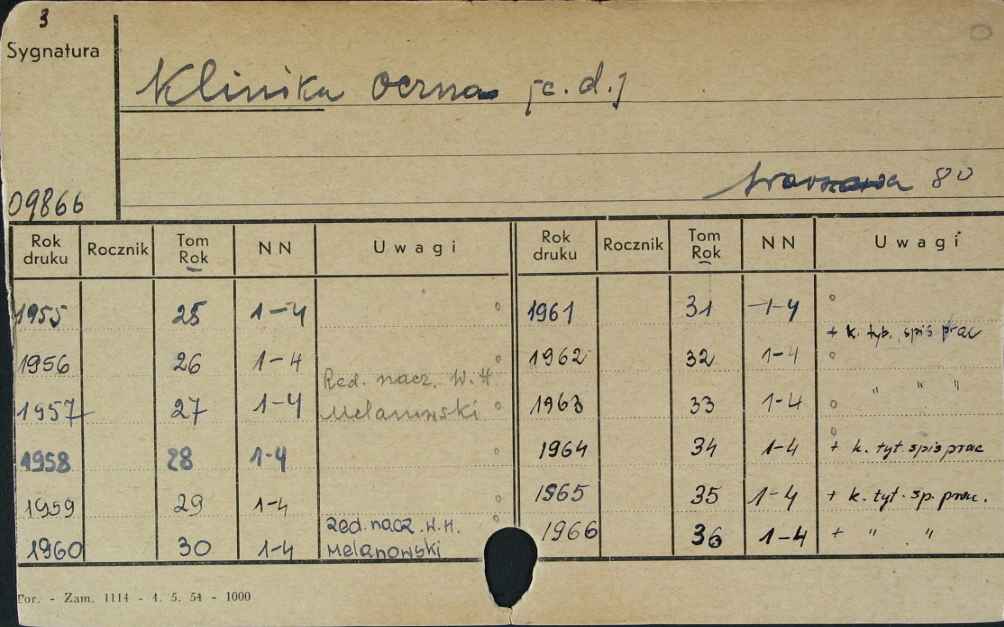 3
Sygnatura
Klinika Oczna [c.d.]
Warszawa 80
09866
Rok druku Rocznik Tom Rok NN Uwagi Rok druku Rocznik Tom Rok NN Uwagi
1955 25 1-4 1961 31 1-4
+ k. tyt., spis prac
1956 26 1-4 1962 32 1-4
Red. nacz. W.H. " " "
1957 27 1-4 Melanowski 1963 33 1-4
1958 28 1-4 1964 34 1-4 + k. tyt. spis prac
1959 29 1-4 1965 35 1-4 + k. tyt. sp. prac.
Red. nacz. W.H.
1960 30 1-4 Melanowski 1966 36 1-4 + " "
Tor. - Zam. 1114 - 4. 5. 54 - 1000